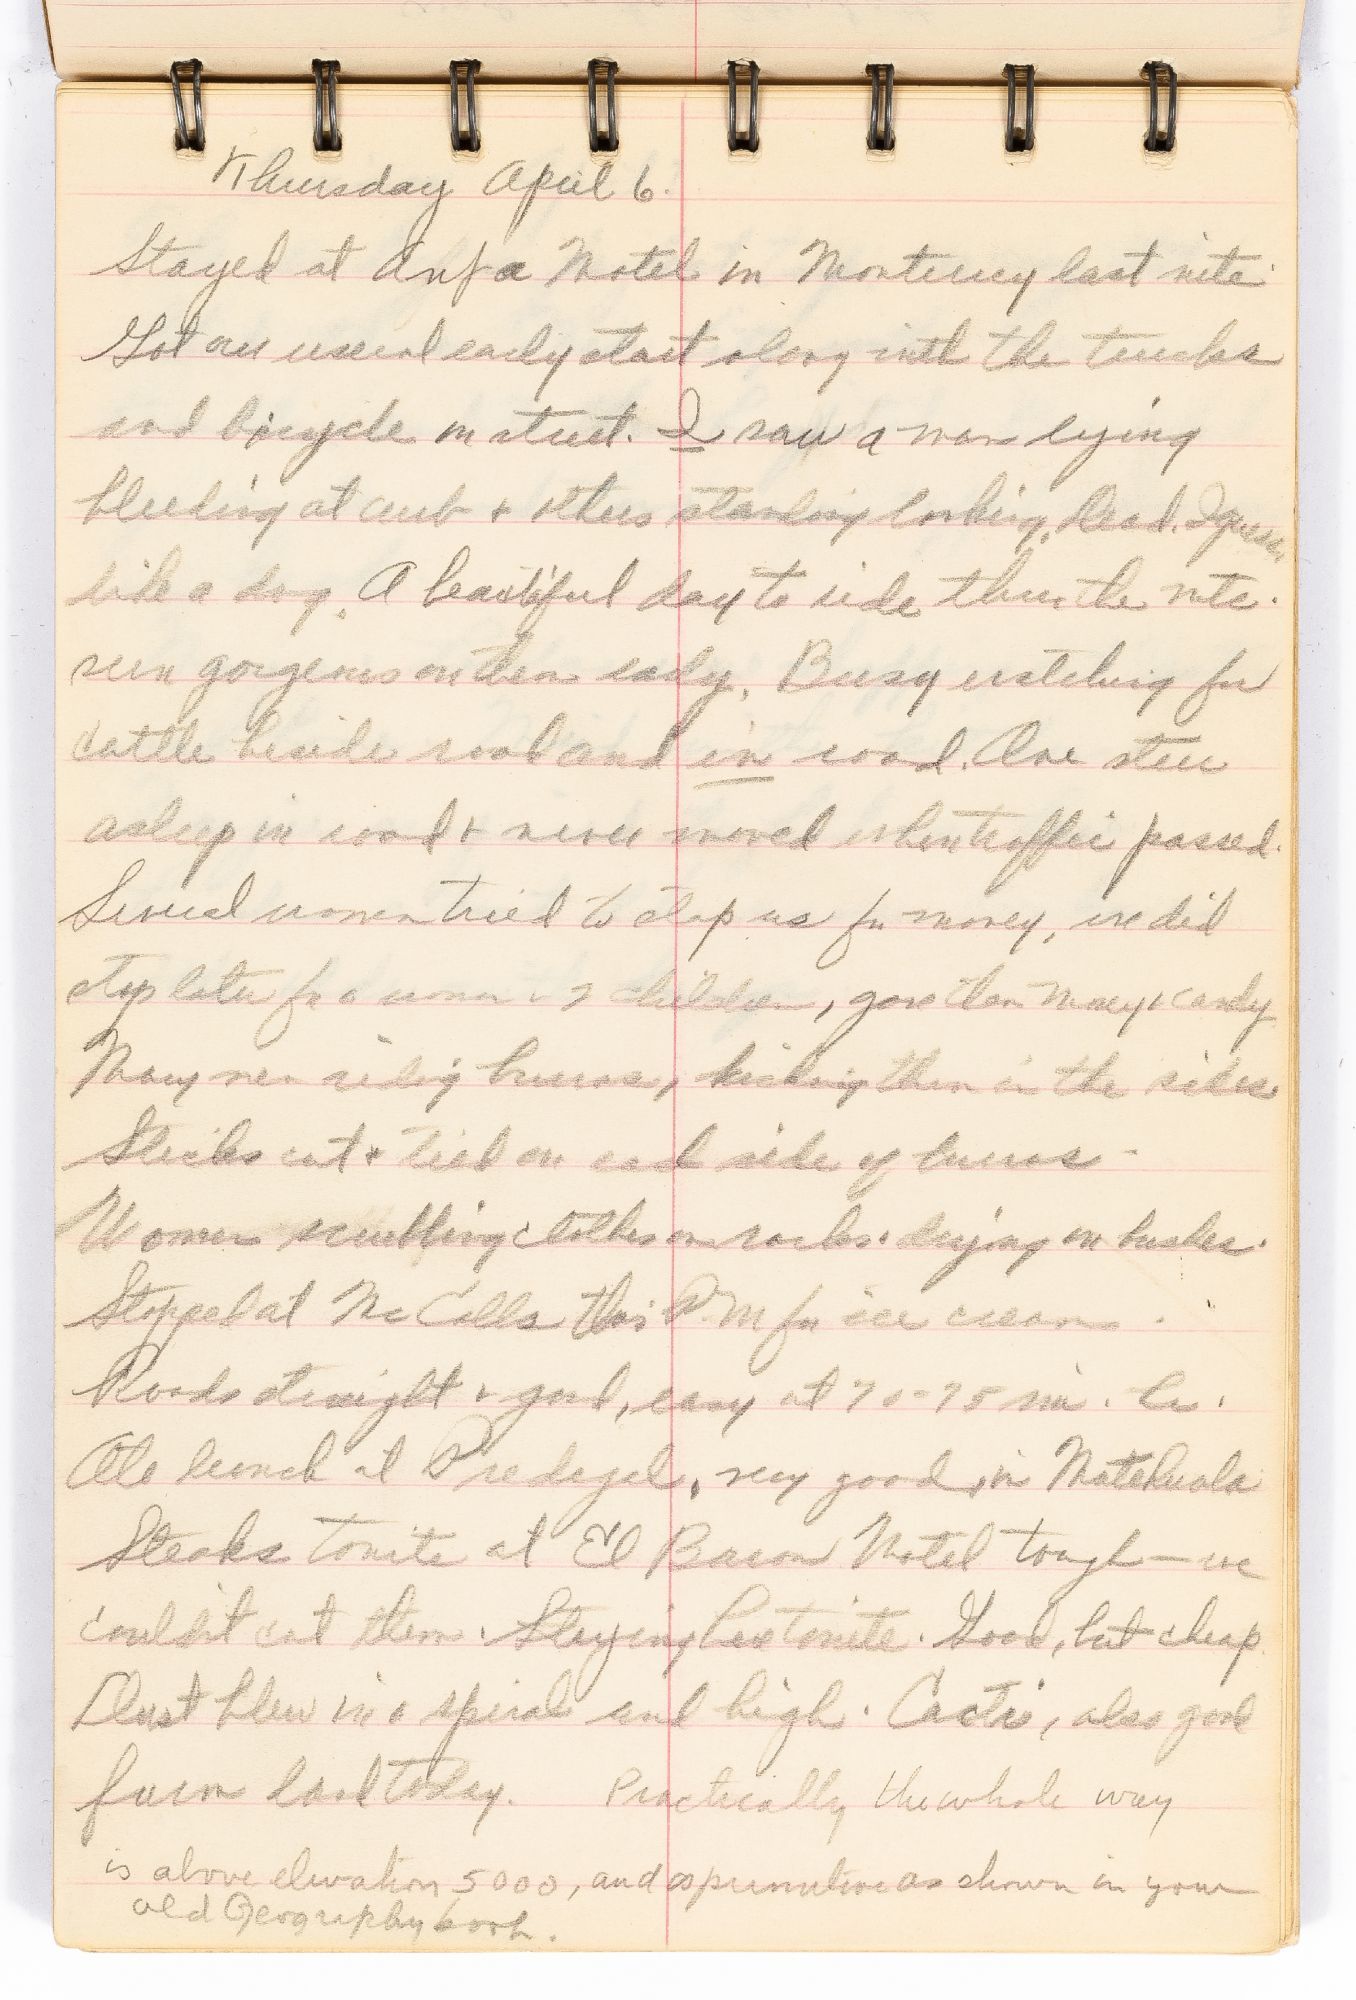 Thursday April 6.
Stayed at Anfa Motel in Monterrey last nite.
Got our usual early start along with the trucks
and bicycle in street. I saw a man lying
bleeding at curb + others standing looking. Dead. I guess,
like a dog. A beautiful day to ride thru the mts.
sun gorgeous on them early. Busy watching for
cattle beside road and in road. One steer
asleep in road + never moved when traffic passed.
Several women tried to stop us for money, we did
stop later for a woman + 2 children, gave them money + candy
Many men riding burros, kicking them in the sides
Sticks cut + tied on each side of burros -
Women scrubbing clothes on rocks. drying on bushes.
Stopped at McCalls this P.M for ice cream.
Roads straight + good, easy at 70-75 mi.
Ate lunch at , very good, in Matehuala
Steaks tonite at El Bacon Motel tough - we
couldn't cut them. Staying here tonite. Good, but cheap.
Dust blew in a spiral and high. Cacti, also good
farm land today. Practically the whole way
is above elevation 5000, and as primitive as shown in your
old Geography book.